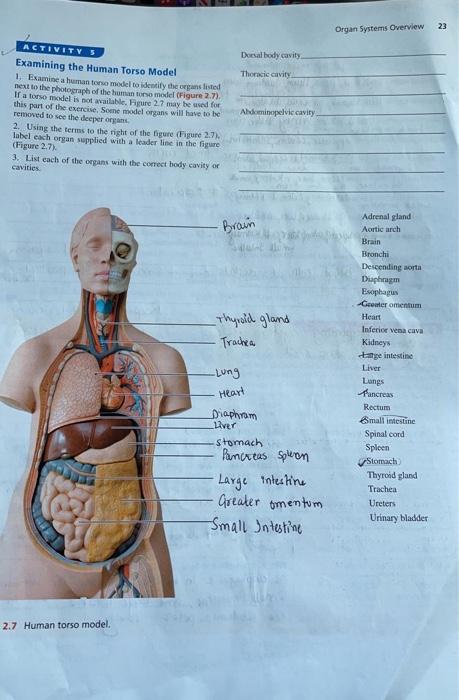 Organ Systems Overview 23
ACTIVITY 5
Examining the Human Torso Model
1. Examine a human torso model to identify the organs listed
next to the photograph of the human torso model (Figure 2.7).
If a torso model is not available, Figure 2.7 may be used for
this part of the exercise. Some model organs will have to be
removed to see the deeper organs.
2. Using the terms to the right of the figure (Figure 2.7),
label each organ supplied with a leader line in the figure
(Figure 2.7).
3. List each of the organs with the correct body cavity or
cavities.
Dorsal body cavity
Thoracic cavity
Abdominopelvic cavity
Brain
Thyroid gland
Trachea
Lung
Heart
Diaphram
Liver
Stomach
Pancreas spleen
Large intestine
Greater omentum
Small Intestine
Adrenal gland
Aortic arch
Brain
Bronchi
Descending aorta
Diaphragm
Esophagus
Greater omentum
Heart
Inferior vena cava
Kidneys
Large intestine
Liver
Lungs
Pancreas
Rectum
Small intestine
Spinal cord
Spleen
Stomach
Thyroid gland
Trachea
Ureters
Urinary bladder
2.7 Human torso model.